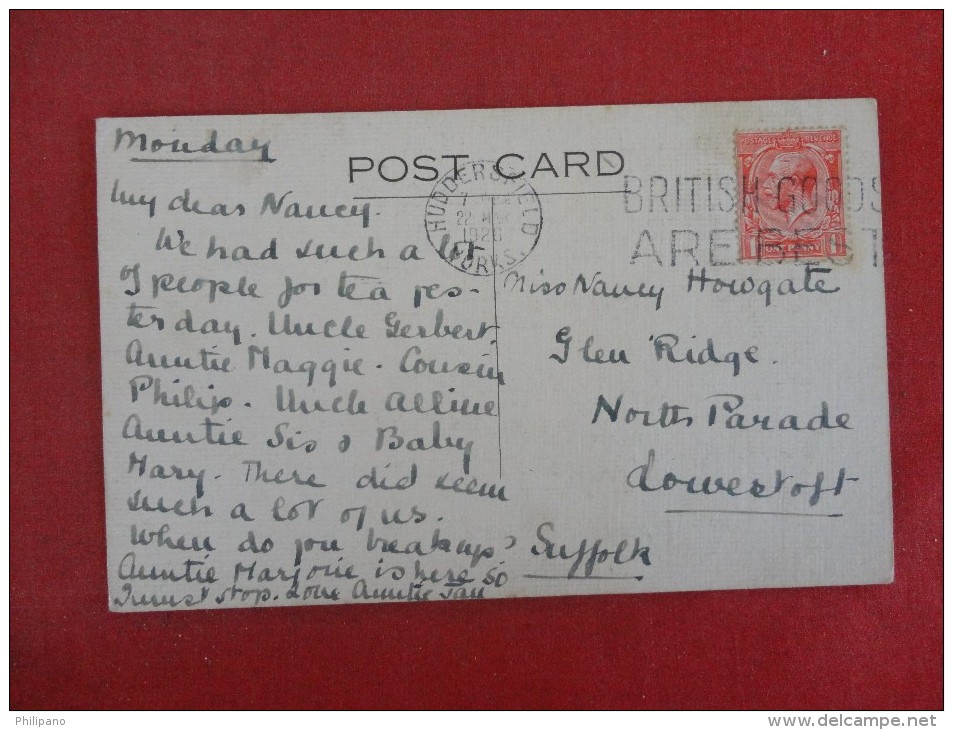 Monday
POST CARD
My dear Nancy.
We had such a lot
of people for tea yes-
terday. Uncle Gerbert.
Auntie Maggie. Cousin
Philip. Uncle
Auntie Sis & Baby
Mary. There did seem
such a lot of us.
When do you breakup?
Auntie Marjorie is here so
I must stop. Love Auntie
HUDDERSFIELD
22 MAR
1926
YORKS.
BRITISH GOODS
ARE BEST
POSTAGE REVENUE
1 ONE PENNY 1
Miss Nancy Howgate
Glen Ridge.
North Parade
Lowestoft
Suffolk
Philipano
www.delcampe.net